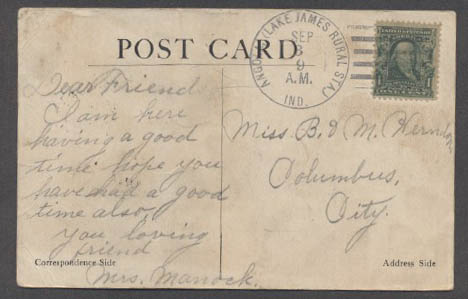 POST CARD
ANGOLA (LAKE JAMES RURAL STA)
SEP
3
9
A.M.
IND.
Dear Friend
I am here
having a good
time hope you
have had a good
time also
You loving
friend
Mrs. Manock.
Correspondence Side
Miss B. & M. Herndon
Columbus,
City.
Address Side